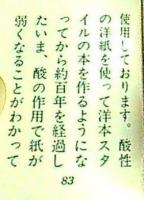 使用しております。酸性
の洋紙を使って洋本スタ
イルの本を作るようにな
ってから約百年を経過し
たいま、酸の作用で紙が
弱くなることがわかって
83